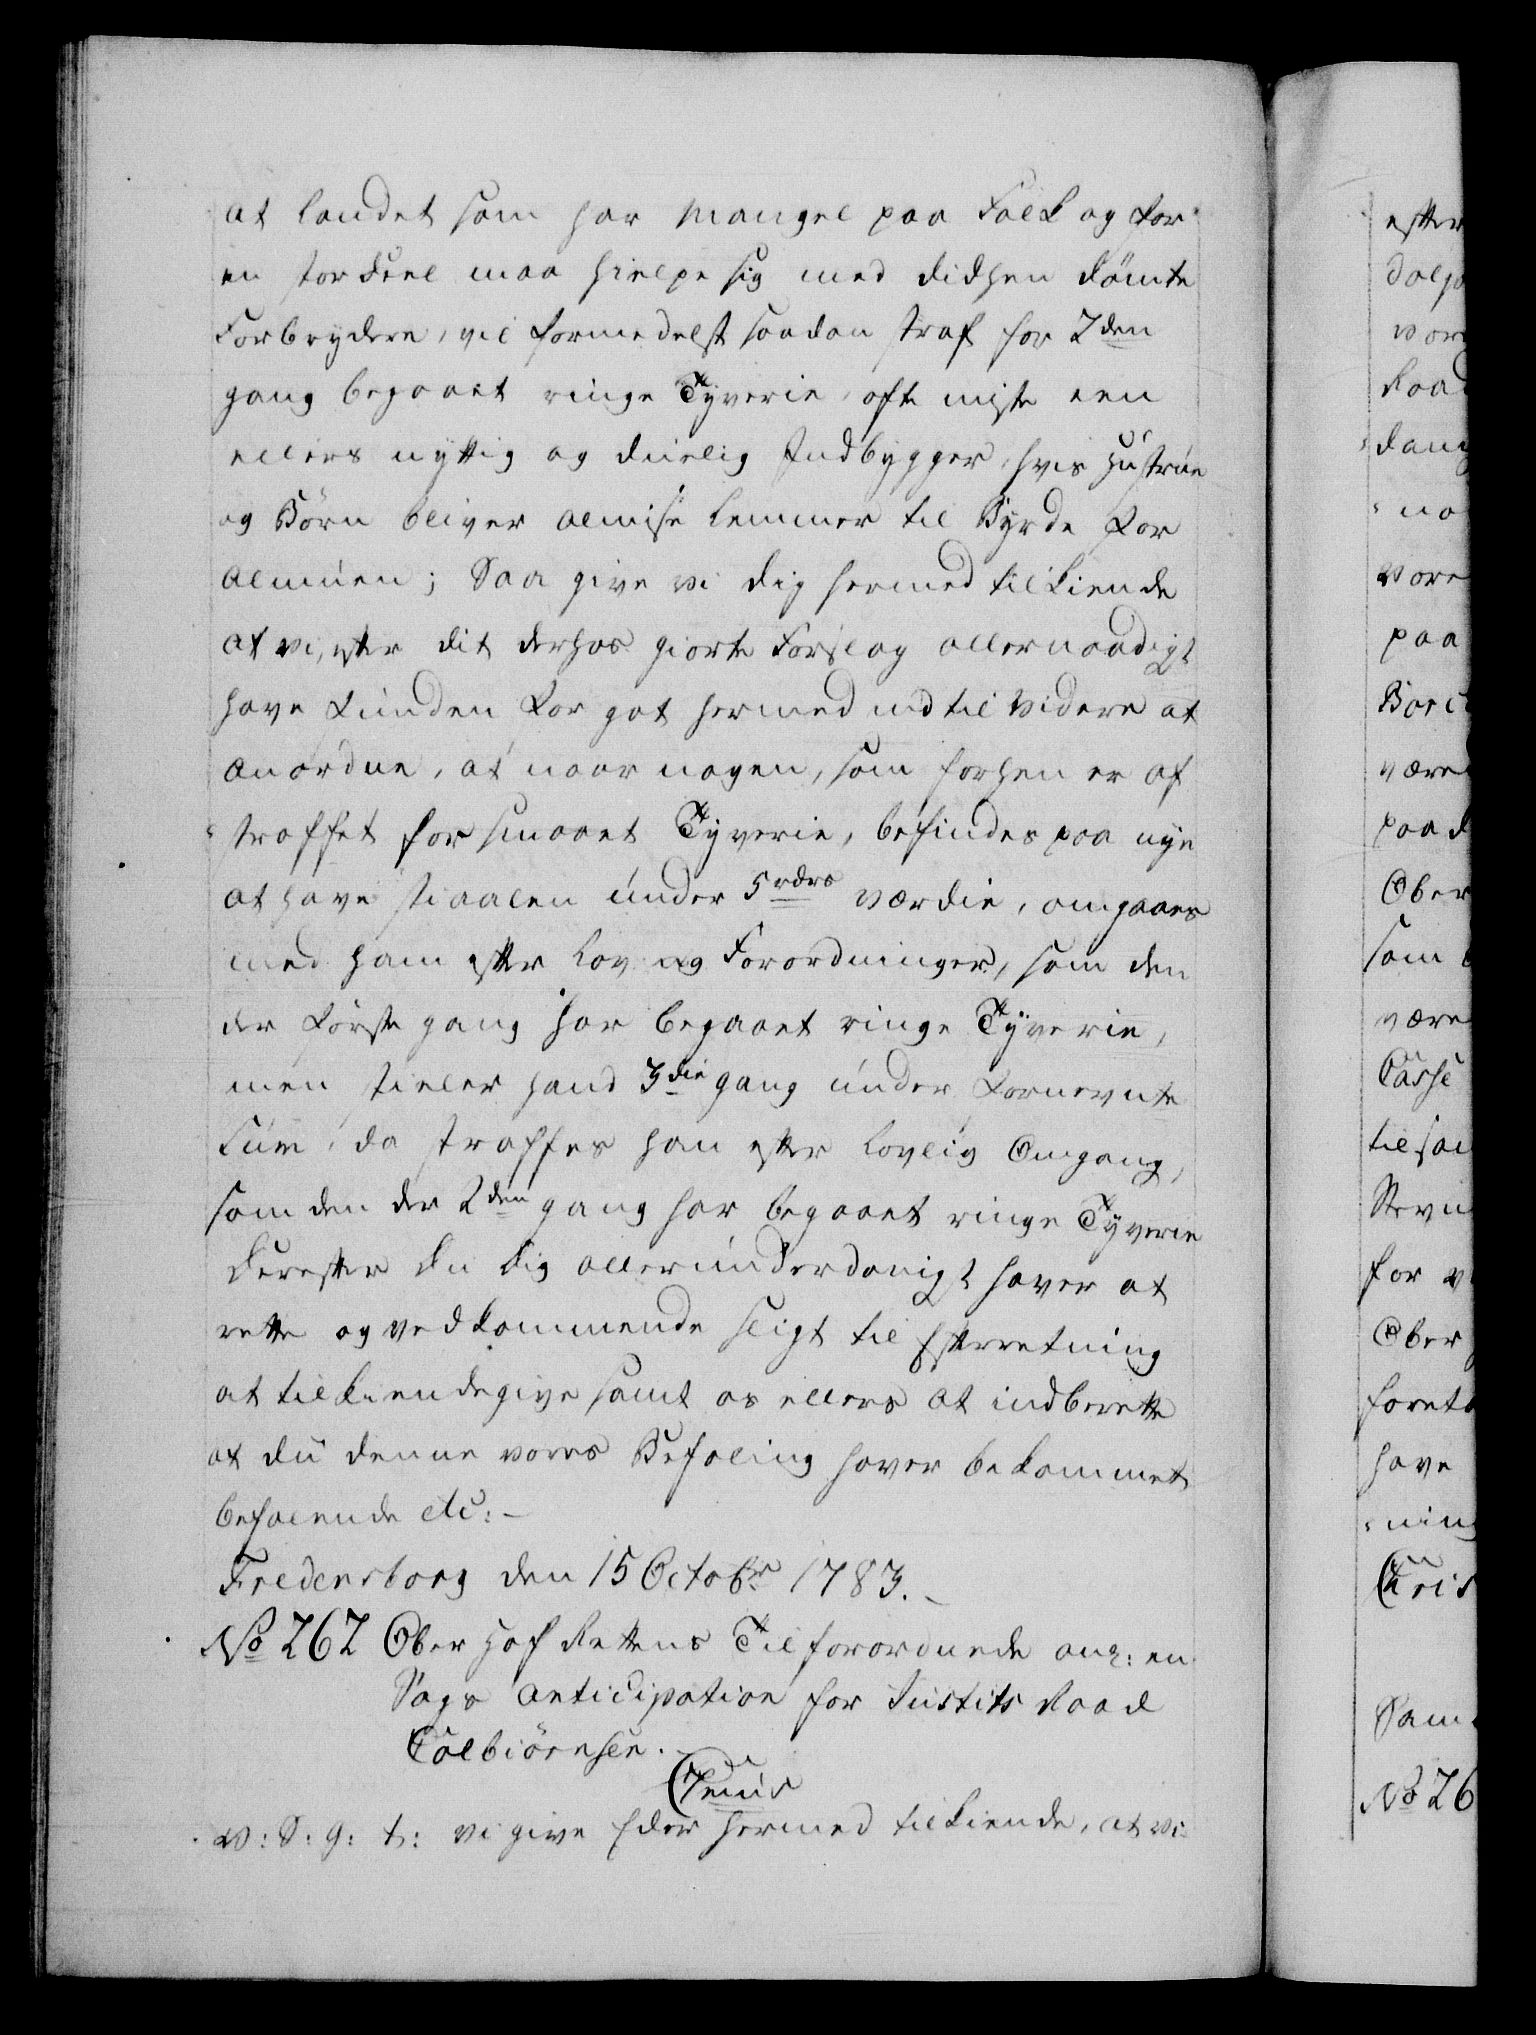 at landet som har Mangel paa Folk og for
en stor Deel maa hielpe sig med didhen dömte
Forbrydere, vil formedelst saadan straf for 2den
gang begaaet ringe Tyverie, ofte miste een
ellers nyttig og duelig Indbygger, hvis Hustrue
og Börn bliver almisse Lemmer til Byrde for
Almuen; Saa give vi dig hermed tilkiende
at vi, efter dit derhos giorte Forslag allernaadigst
have funden for got hermed indtil videre at
anordne, at naar nogen, som forhen er af
straffet for smaaet Tyverie, befindes paa nye
at have stiaalen under 5 rdrs værdie, omgaaes
med ham efter Lov og Forordninger, som den
der förste gang har begaaet ringe Tyverie,
men stieler hand 3die gang under fornevnte
Sum, da straffes han efter lovlig Omgang,
som den der 2den gang har begaaet ringe Tyverie
Derefter du dig allerunderdanigst haver at
rette og vedkommende sligt til Efterretning
at tilkiendegive samt os ellers at indberette
at du denne vores Befaling haver bekommet
befalende etc:
Fredensborg den 15 Octobr 1783.
No 262 Ober Hof Rettens Tilforordnede ang: en
Sags Anticipation for Justits Raad
Colbiörnsen.
C7mus
V: S: G: T: vi give Eder hermed tilkiende, at vi